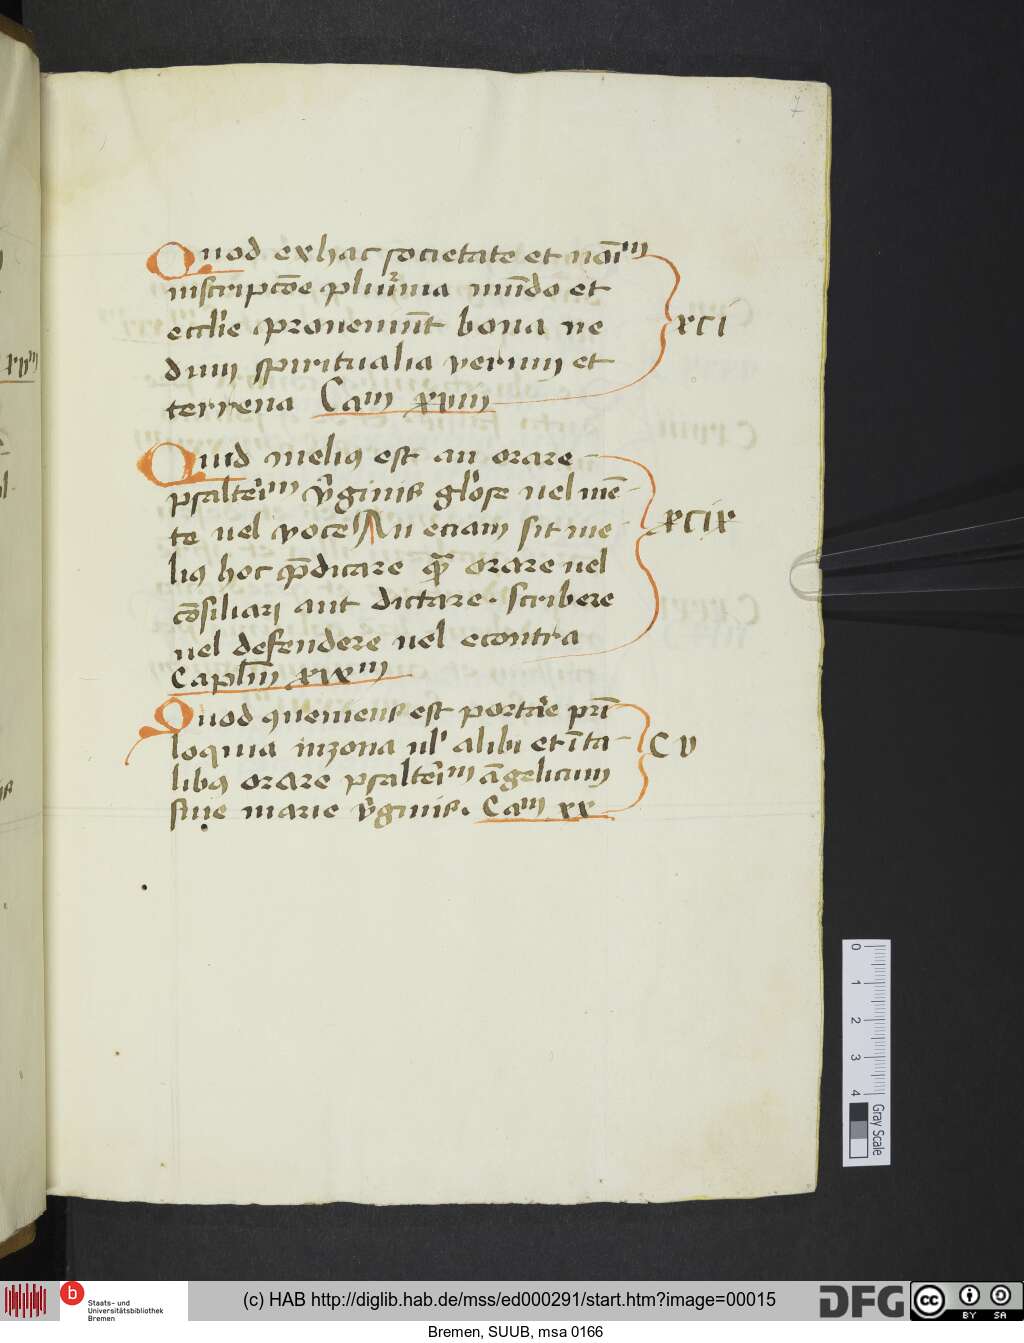 7
Quod ex hac societate et noīᵐ
inscripcōe plurīma mūdo et
ecclīe proveniūt bona ne
dum spiritualia verum et
terrena Caᵐ xviii
xci
Quid meliꝰ est an orare
psalterīᵐ v̄ginis glōse vel mē-
te vel voce An eciam sit me
liꝰ hoc p̄dicare qͣ̄ orare vel
cōsiliari aut dictare. scribere
vel defendere vel econtra
Caplm̄ xixᵐ
xcix
Quod queniens est portare prī
loquia in zona vl' alibi et ī ta-
libꝰ orare psalterīᵐ āgelicum
sive marie v̄ginis. Caᵐ xx
C v
xviiᵐ
0 1 2 3 4
Gray Scale
b Staats- und
Universitätsbibliothek
Bremen
(c) HAB http://diglib.hab.de/mss/ed000291/start.htm?image=00015
DFG
cc BY SA
Bremen, SUUB, msa 0166